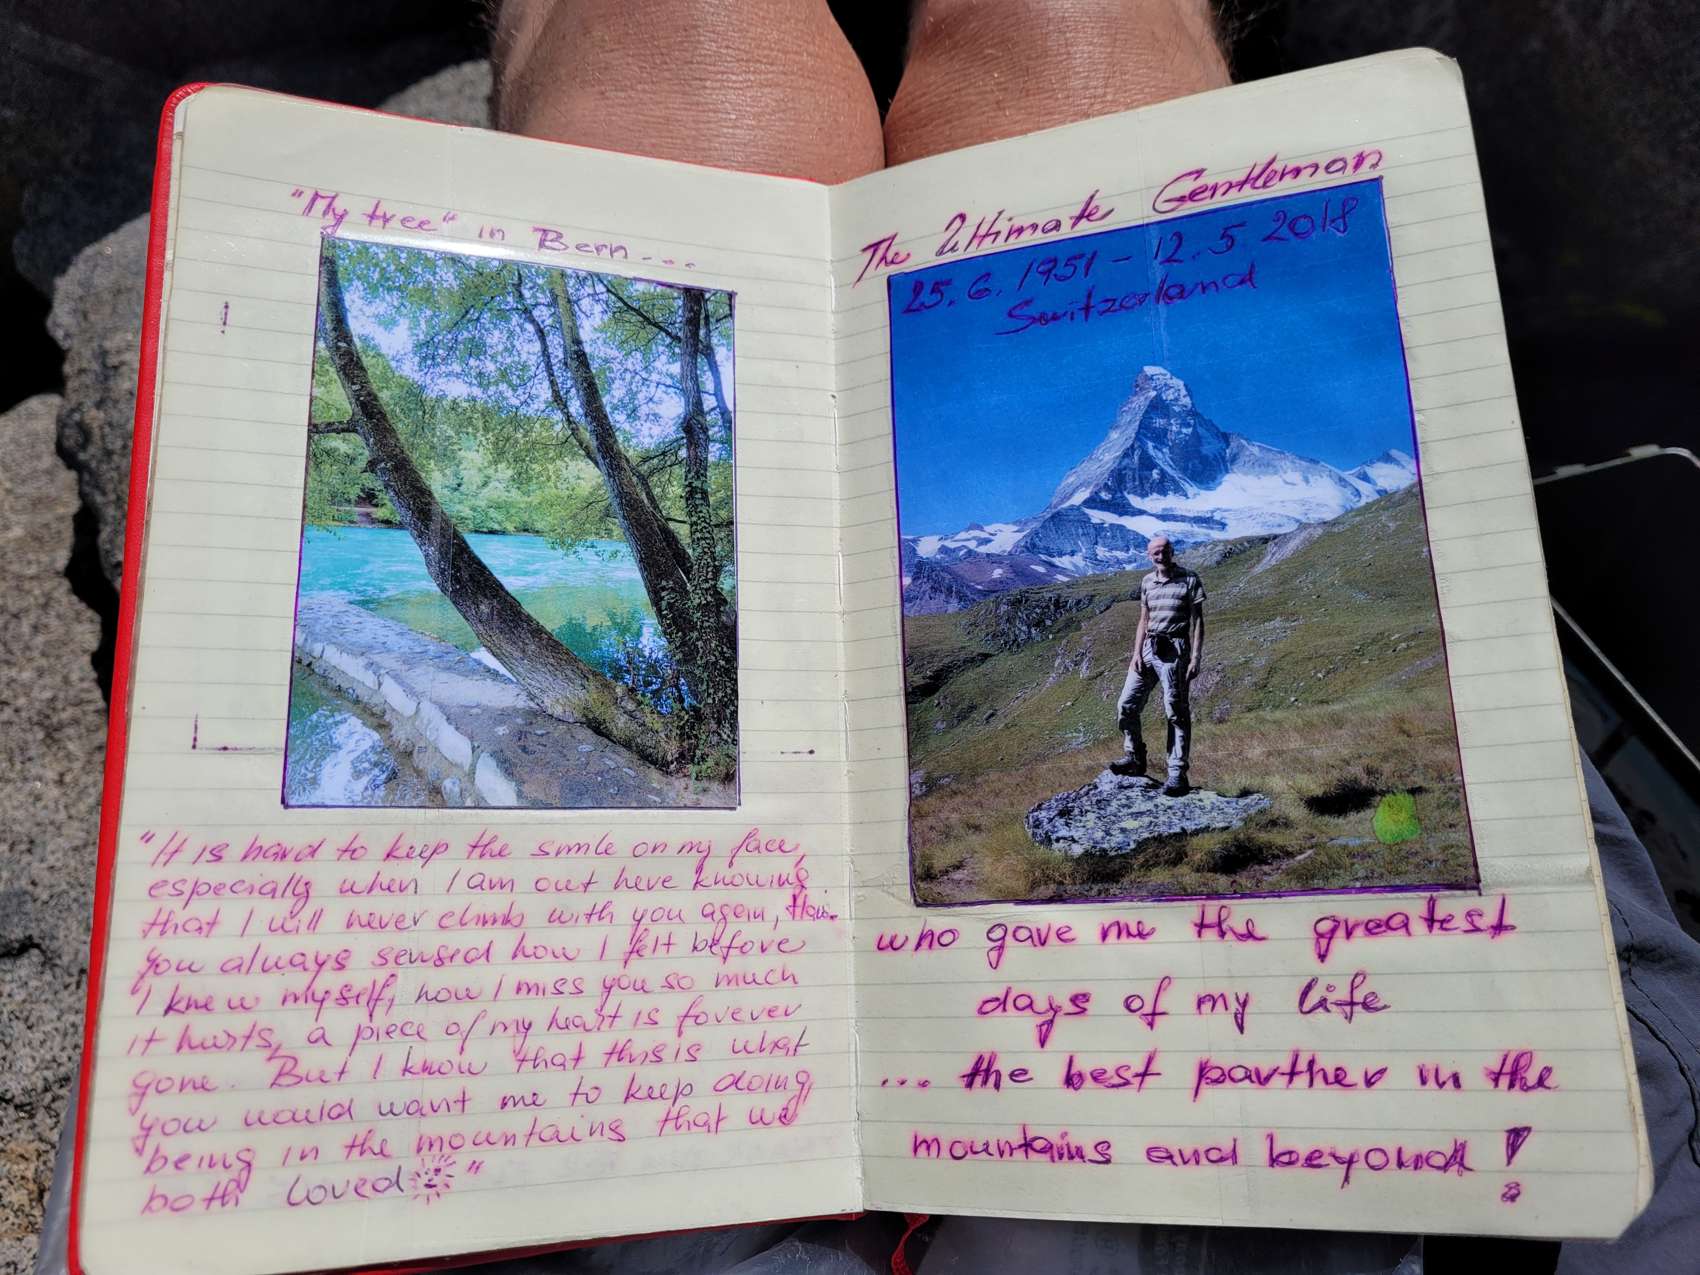 "My tree" in Bern...
"It is hard to keep the smile on my face,
especially when I am out here knowing
that I will never climb with you again,
you always sensed how I felt before
I knew myself, how I miss you so much
it hurts, a piece of my heart is forever
gone. But I know that this is what
you would want me to keep doing,
being in the mountains that we
both loved"
The Ultimate Gentleman
25.6.1951 - 12.5 2018
Switzerland
who gave me the greatest
days of my life
... the best parther in the
mountains and beyond!